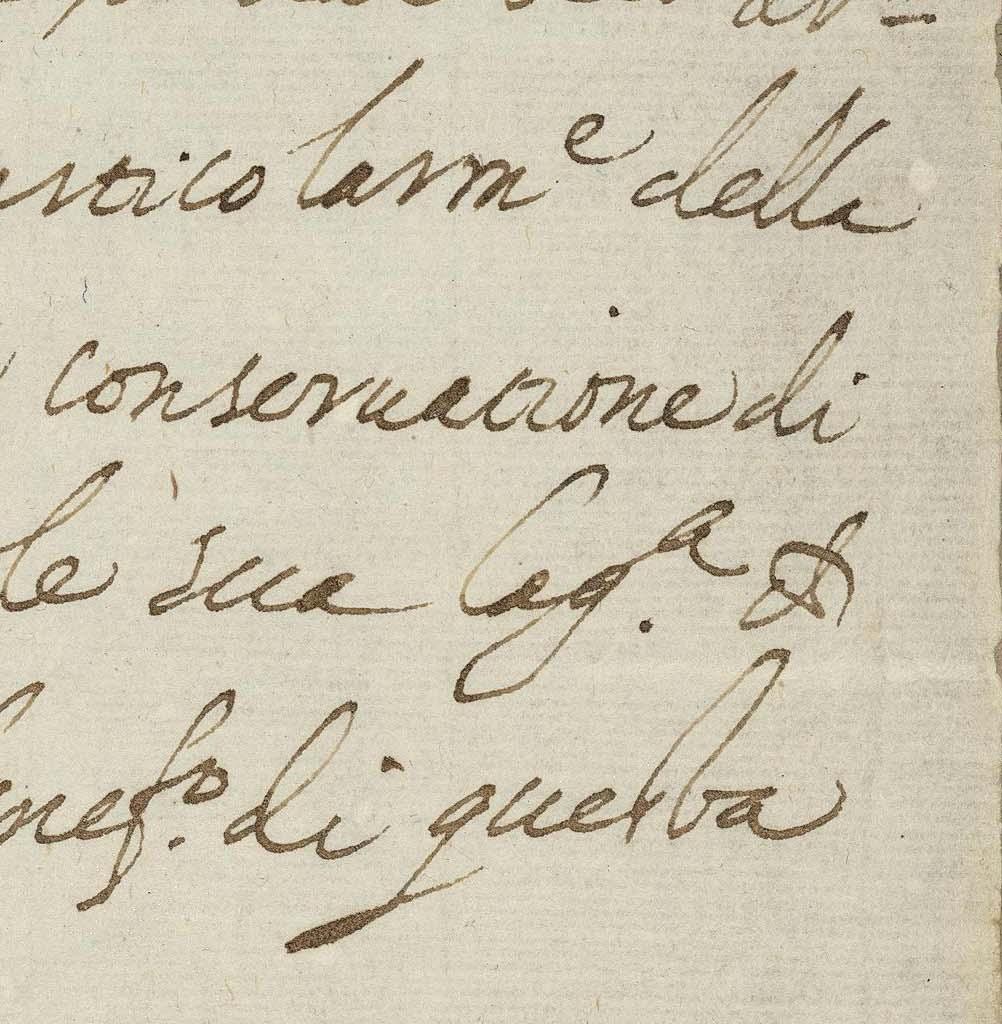 articolarm^e della
conseruatione di
le sua Cag.^a &
nef.^o di guerba